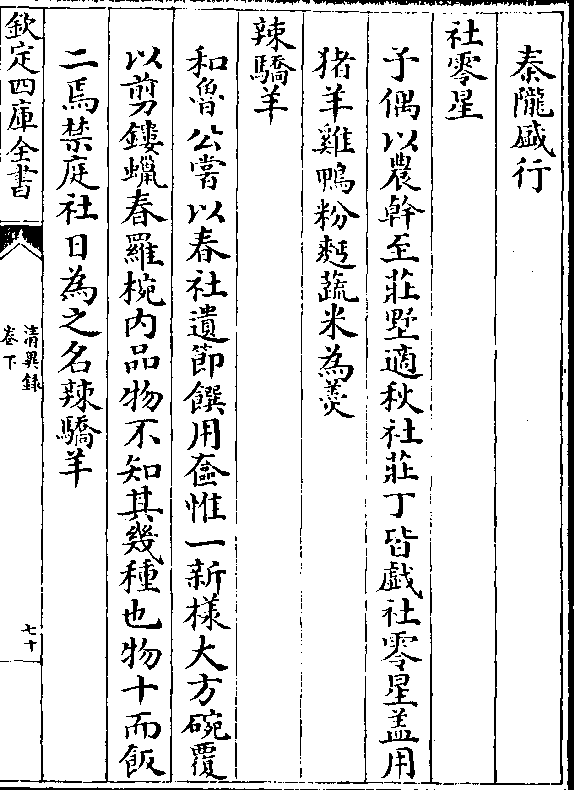 秦隴盛行
社零星
予偶以農幹至莊墅適秋社莊丁皆戲社零星盖用
猪羊雞鴨粉麪蔬米為羮
辣驕羊
和魯公嘗以春社遺節饌用奩惟一新様大方碗覆
以剪鏤蠟春羅椀内品物不知其幾種也物十而飯
二焉禁庭社日為之名辣驕羊
欽定四庫全書
清異録
卷下
七十